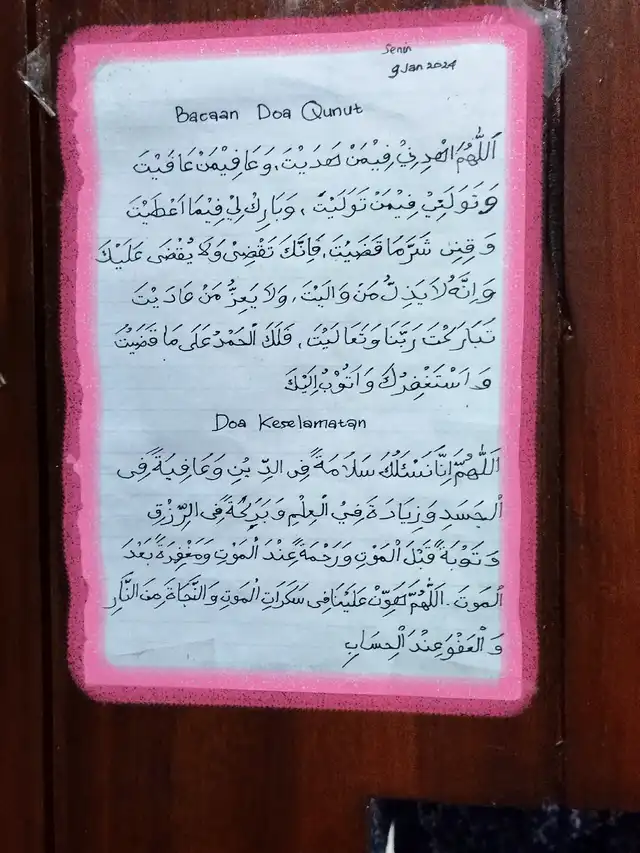 Senin
9 Jan 2024
Bacaan Doa Qunut
اَللّٰهُمَّ اهْدِنِيْ فِيْمَنْ هَدَيْتَ، وَعَافِيْمَنْ عَافَيْتَ
وَتَوَلَّنِيْ فِيْمَنْ تَوَلَّيْتَ، وَبَارِكْ لِيْ فِيْمَا اَعْطَيْتَ
وَقِنِيْ شَرَّمَا قَضَيْتَ، فَاِنَّكَ تَقْضِيْ وَلَا يُقْضَى عَلَيْكَ
وَاِنَّهُ لَا يَذِلُّ مَنْ وَالَيْتَ، وَلَا يَعِزُّ مَنْ عَادَيْتَ
تَبَارَكْتَ رَبَّنَا وَتَعَالَيْتَ، فَلَكَ الْحَمْدُ عَلَى مَا قَضَيْتَ
وَاَسْتَغْفِرُكَ وَاَتُوْبُ اِلَيْكَ
Doa Keselamatan
اَللّٰهُمَّ اِنَّا نَسْئَلُكَ سَلَامَةً فِى الدِّيْنِ وَعَافِيَةً فِى
الْجَسَدِ وَزِيَادَةً فِيْ الْعِلْمِ وَبَرَكَةً فِى الرِّزْقِ
وَتَوْبَةً قَبْلَ الْمَوْتِ وَرَحْمَةً عِنْدَ الْمَوْتِ وَمَغْفِرَةً بَعْدَ
الْمَوْتَ. اَللّٰهُمَّ هَوِّنْ عَلَيْنَا فِى سَكَرَاتِ الْمَوْتِ وَالنَّجَاةَ مِنَ النَّارِ
وَالْعَفْوَ عِنْدَ الْحِسَابِ